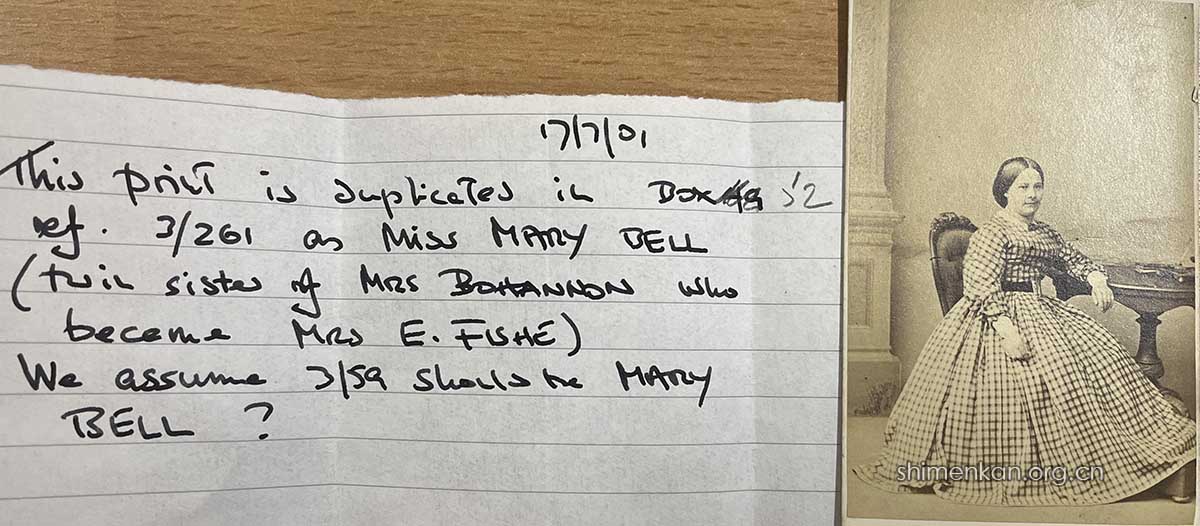 17/7/01
This print is duplicated in Box 52
ref. 3/261 as Miss MARY BELL
(twin sister of MRS BOHANNON who
became MRS E. FISHE)
We assume 3/59 should be MARY
BELL ?
shimenkan.org.cn